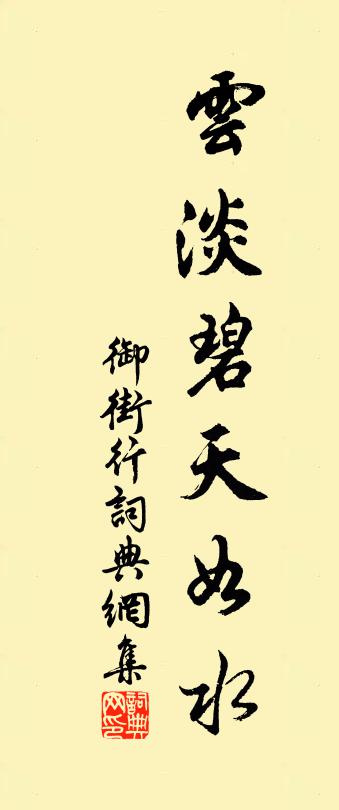 雲淡碧天如水
御街行詞典網集
詞典
网印